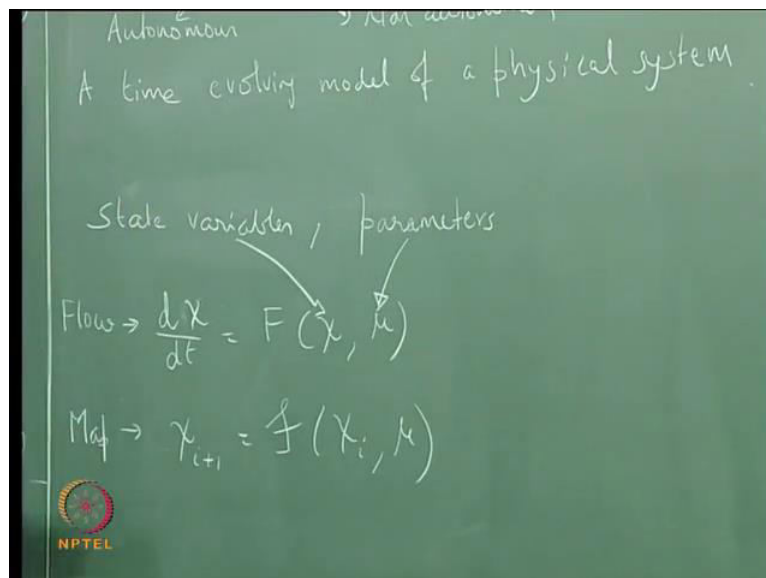 Autonomous
A time evolving model of a physical system
State variables, parameters
Flow → dX/dt = F(X, μ)
Map → X_{i+1} = f(X_i, μ)
NPTEL